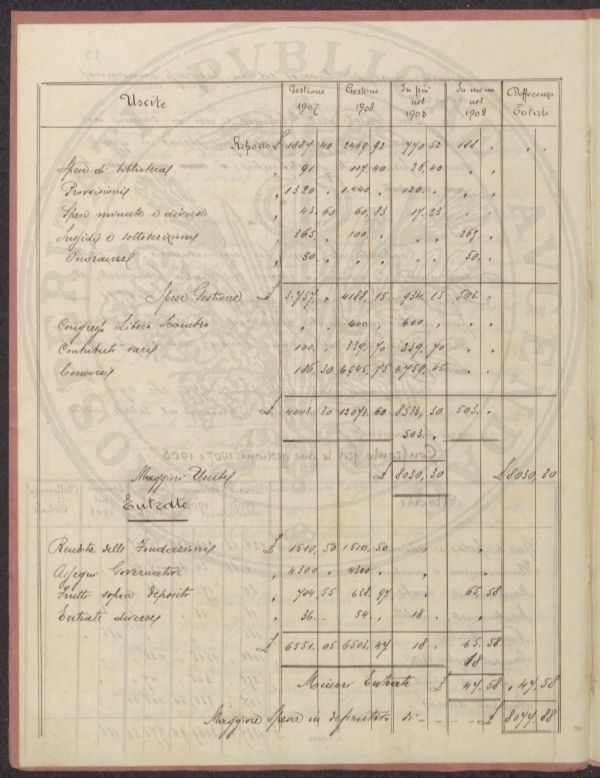 Uscite Gestione 1907 Gestione 1908 In più nel 1908 In meno nel 1908 Differenza Totale
Riporto £ 1887,40 2469,92 770,52 188, " " "
Spese di biblioteca " 91 " 117,40 26,40 " "
Provvisioni " 1320 " 1.440 " 120 " " "
Spese minute e diverse " 43,60 60,83 17,23 " "
Sussidi e sottoscrizioni " 365 " 100 " " " 265, "
Onoranze " 50 " " " " " 50, "
Spese Gestione £ 3.757, " 4188,15 934,15 503, "
Congresso Libero Scambio " " 600 " 600 " "
Contributi varii 100, " 339,70 239,70 "
Concorsi 186,30 6945,75 6759,45
£ 4043,30 12073,60 8533,30 503, "
503, "
Maggiori Uscite £ 8030,30 £ 8030,30
Entrate
Rendita delle Fondazioni £ 1510,50 1510,50 " "
Assegni Governativi " 4300 " 4300 " " "
Frutti sopra depositi " 704,55 638,97 " 65,58
Entrate diverse " 36.- 54. " 18. " "
£ 6551,05 6503,47 18. " 65,58
18
Minori Entrate £ 47,58 " 47,58
Maggiore spese in definitiva di - - - £ 8077,88